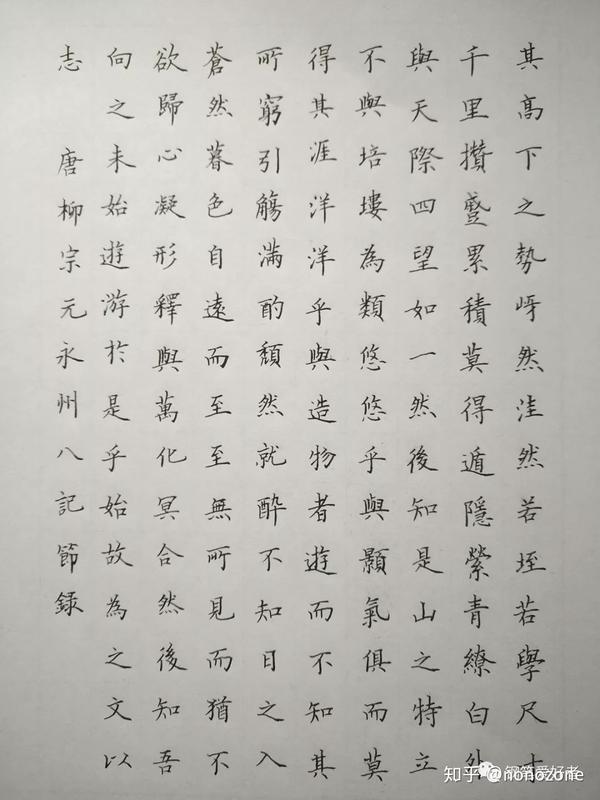 其高下之勢岈然洼然若垤若學尺寸
千里攢蹙累積莫得遁隱縈青繚白外
與天際四望如一然後知是山之特立
不與培塿為類悠悠乎與顥氣俱而莫
得其涯洋洋乎與造物者遊而不知其
所窮引觴滿酌頹然就醉不知日之入
蒼然暮色自遠而至至無所見而猶不
欲歸心凝形釋與萬化冥合然後知吾
向之未始遊游於是乎始故為之文以
志 唐柳宗元永州八記節錄
钢笔爱好者
知乎 @nonozone